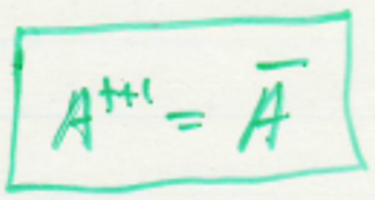 A^{t+1} = \overline{A}